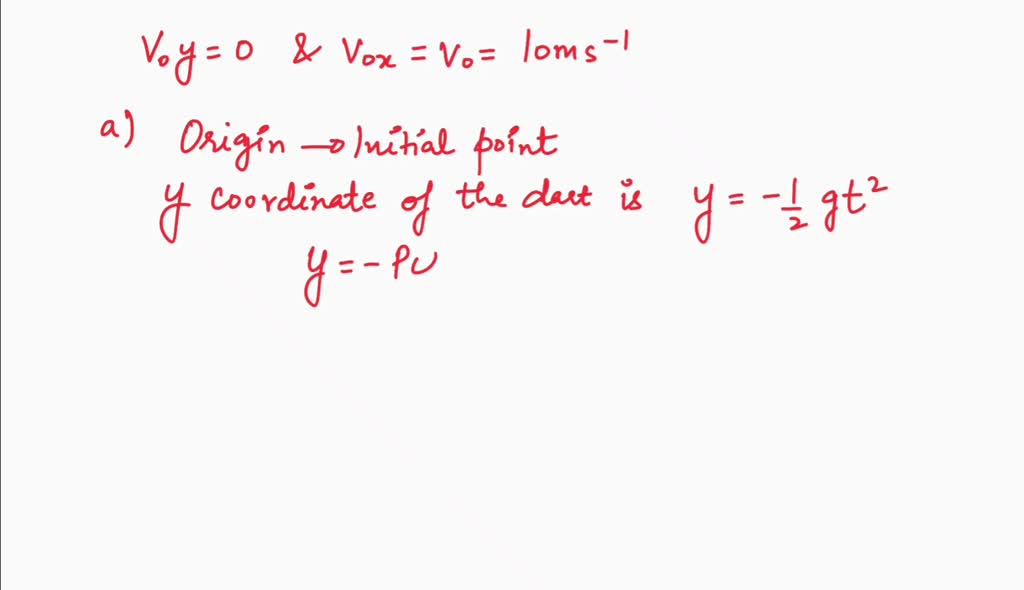 V₀y = 0 & V₀x = V₀ = 10ms⁻¹
a) Origin → Initial point
y coordinate of the dart is y = -½ gt²
y = - PQ